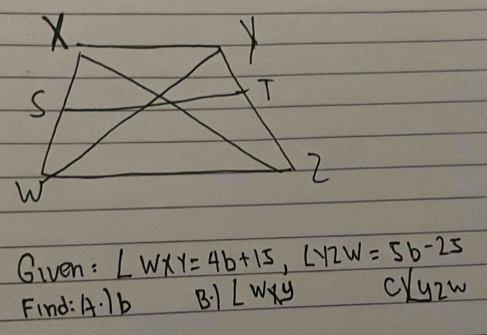 X Y
S T
W Z
Given: ∠WXY = 4b+15, ∠YZW = 5b-25
Find: A.) b B.) ∠WXY C.) ∠YZW